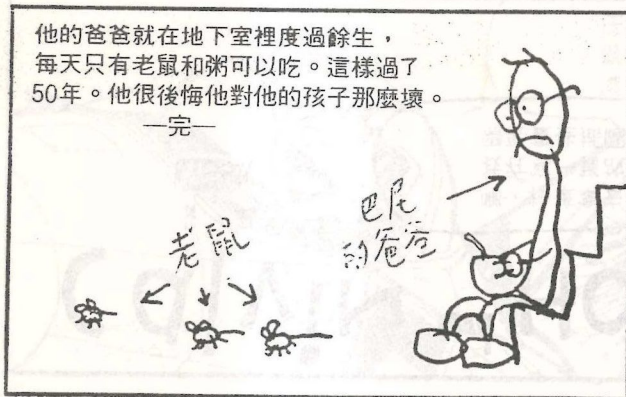 他的爸爸就在地下室裡度過餘生，
每天只有老鼠和粥可以吃。這樣過了
50年。他很後悔他對他的孩子那麼壞。
—完—
老鼠
巴尼
的爸爸